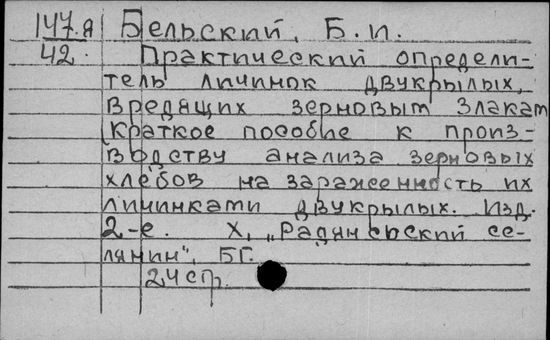 147.я Бельский, Б.И.
42. Практический определи-
тель личинок двукрылых,
вредящих зерновым злакам
(краткое пособие к произ-
водству анализа зерновых
хлебов на зараженность их
личинками двукрылых. Изд.
2-е. Х, „Радянський се-
лянин", БГ.
24 ср.